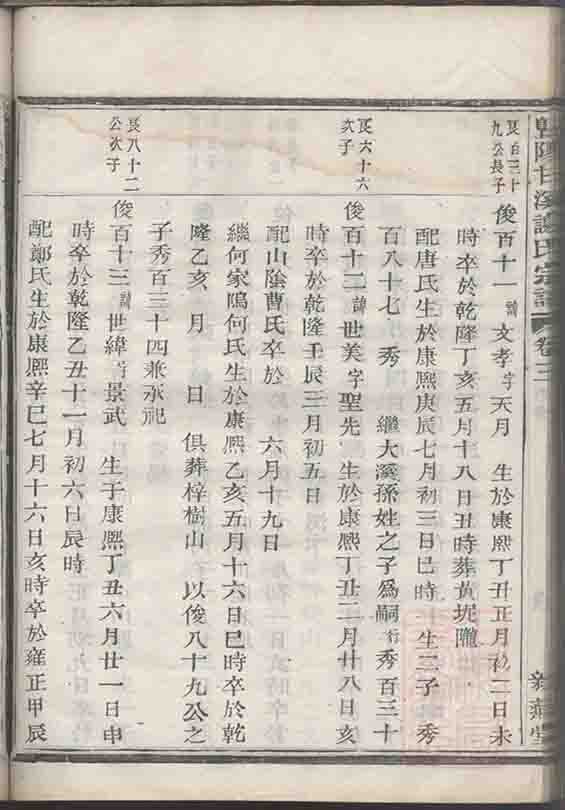 甘溪謝氏宗譜 卷三
長百三十
九公長子
俊百十一 諱文孝字天月 生於康熙丁丑正月初二日未
時卒於乾隆丁亥五月十八日丑時葬黃坭隴
配唐氏生於康熙庚辰七月初三日巳時 生二子 秀
百八十七 秀 繼大溪孫姓之子為嗣行秀百三十
長六十六
次子
俊百十二諱世美字聖先 生於康熙丁丑二月廿八日亥
時卒於乾隆壬辰三月初五日
配山陰曹氏卒於 六月十九日
繼何家隖何氏生於康熙乙亥五月十六日巳時卒於乾
隆乙亥 月 日 俱葬梓樹山 以俊八十九公之
子秀百三十四兼承祀
長八十二
公次子
俊百十三諱世緯行景武 生于康熙丁丑六月廿一日申
時卒於乾隆乙丑十一月初六日辰時
配鄭氏生於康熙辛巳七月十六日亥時卒於雍正甲辰